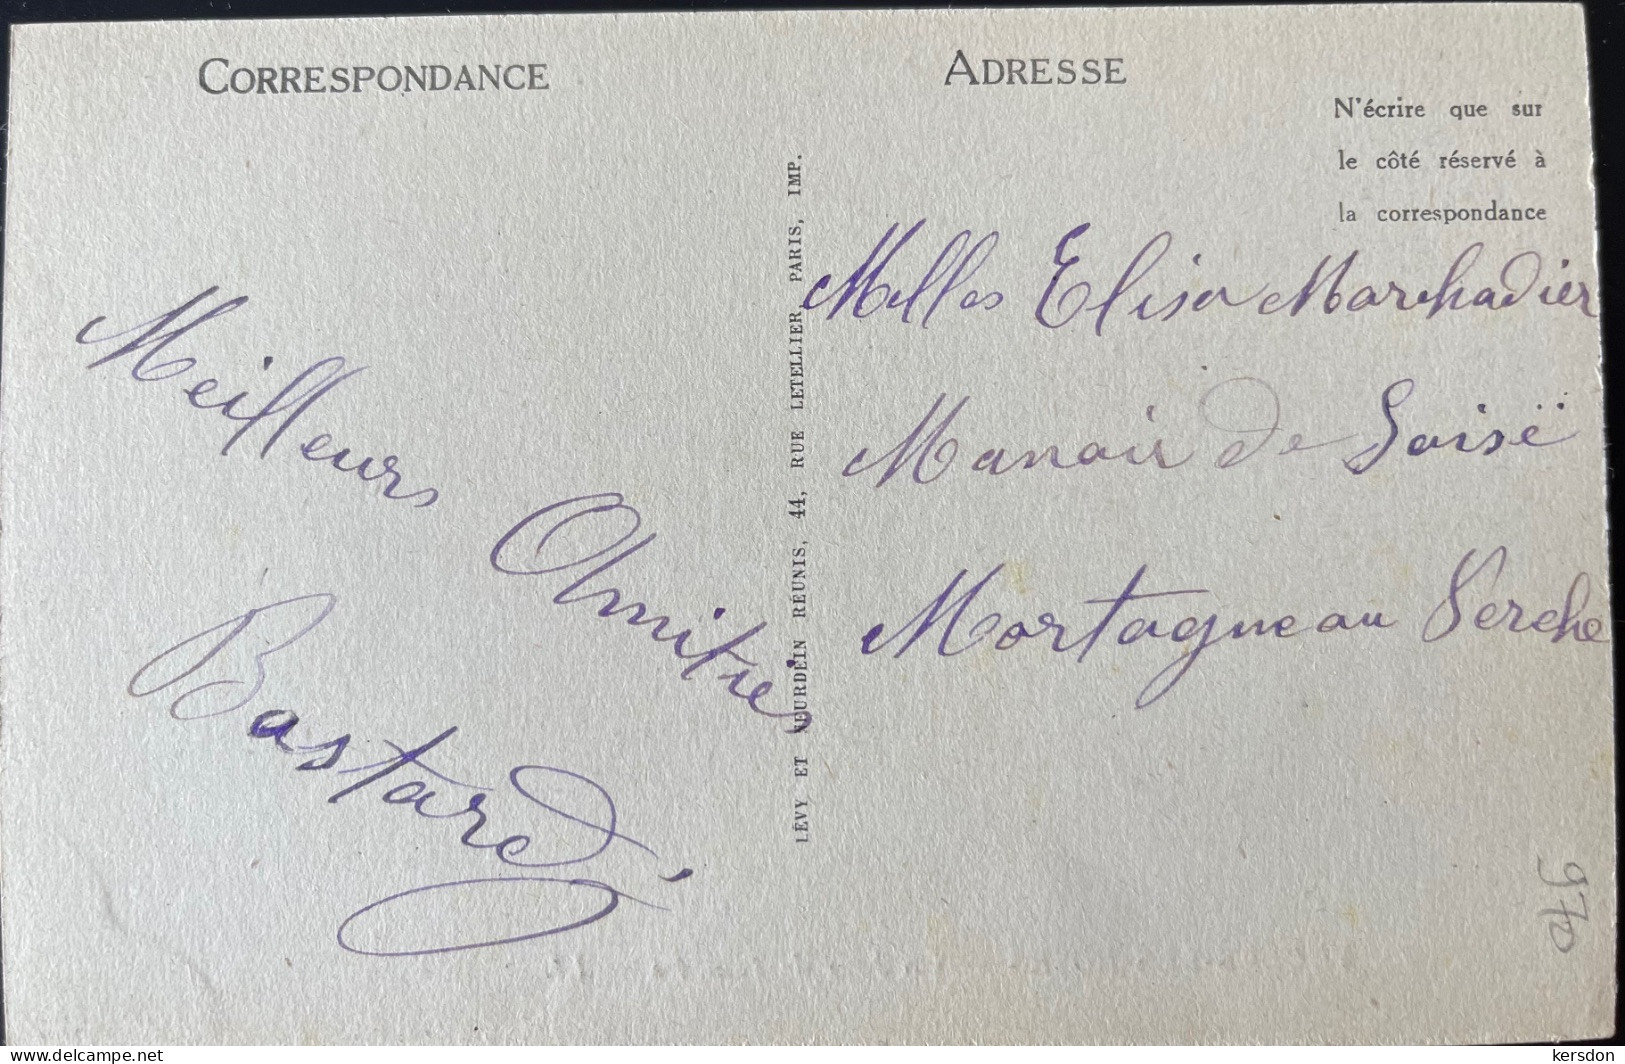 CORRESPONDANCE
Meilleurs Amitiés
Bastard
LÉVY ET NEURDEIN RÉUNIS, 44, RUE LETELLIER, PARIS, IMP.
ADRESSE
N'écrire que sur
le côté réservé à
la correspondance
Melles Elisa Marchadier
Manoir de Soisë
Mortagne au Perche
970
delcampe.net
kersdon